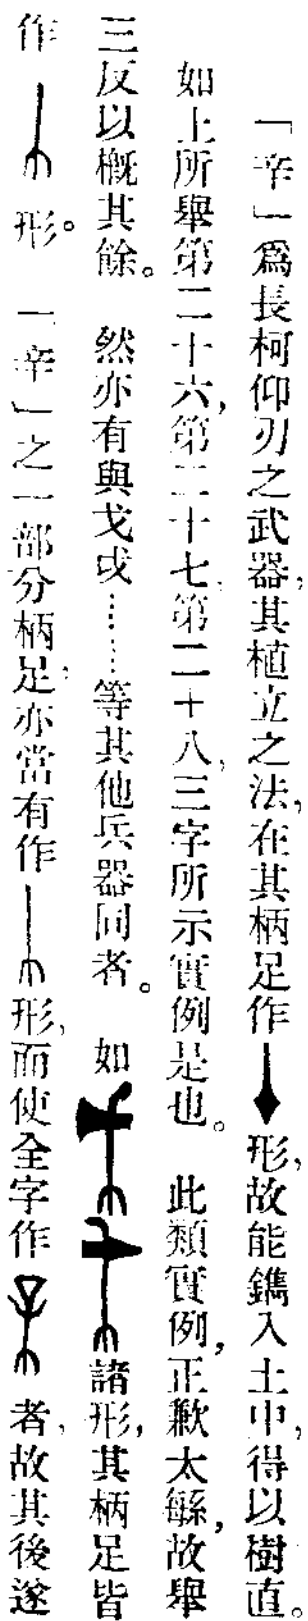 「䇂」爲長柯仰刃之武器，其植立之法，在其柄足作形，故能鐫入土中，得以樹直。
如上所舉第二十六，第二十七，第二十八，三字所示實例是也。此類實例，正歉太緐，故舉
三反以概其餘。然亦有與戈戉……等其他兵器同者。如諸形，其柄足皆
作形。「䇂」之一部分柄足，亦當有作形，而使全字作者，故其後遂